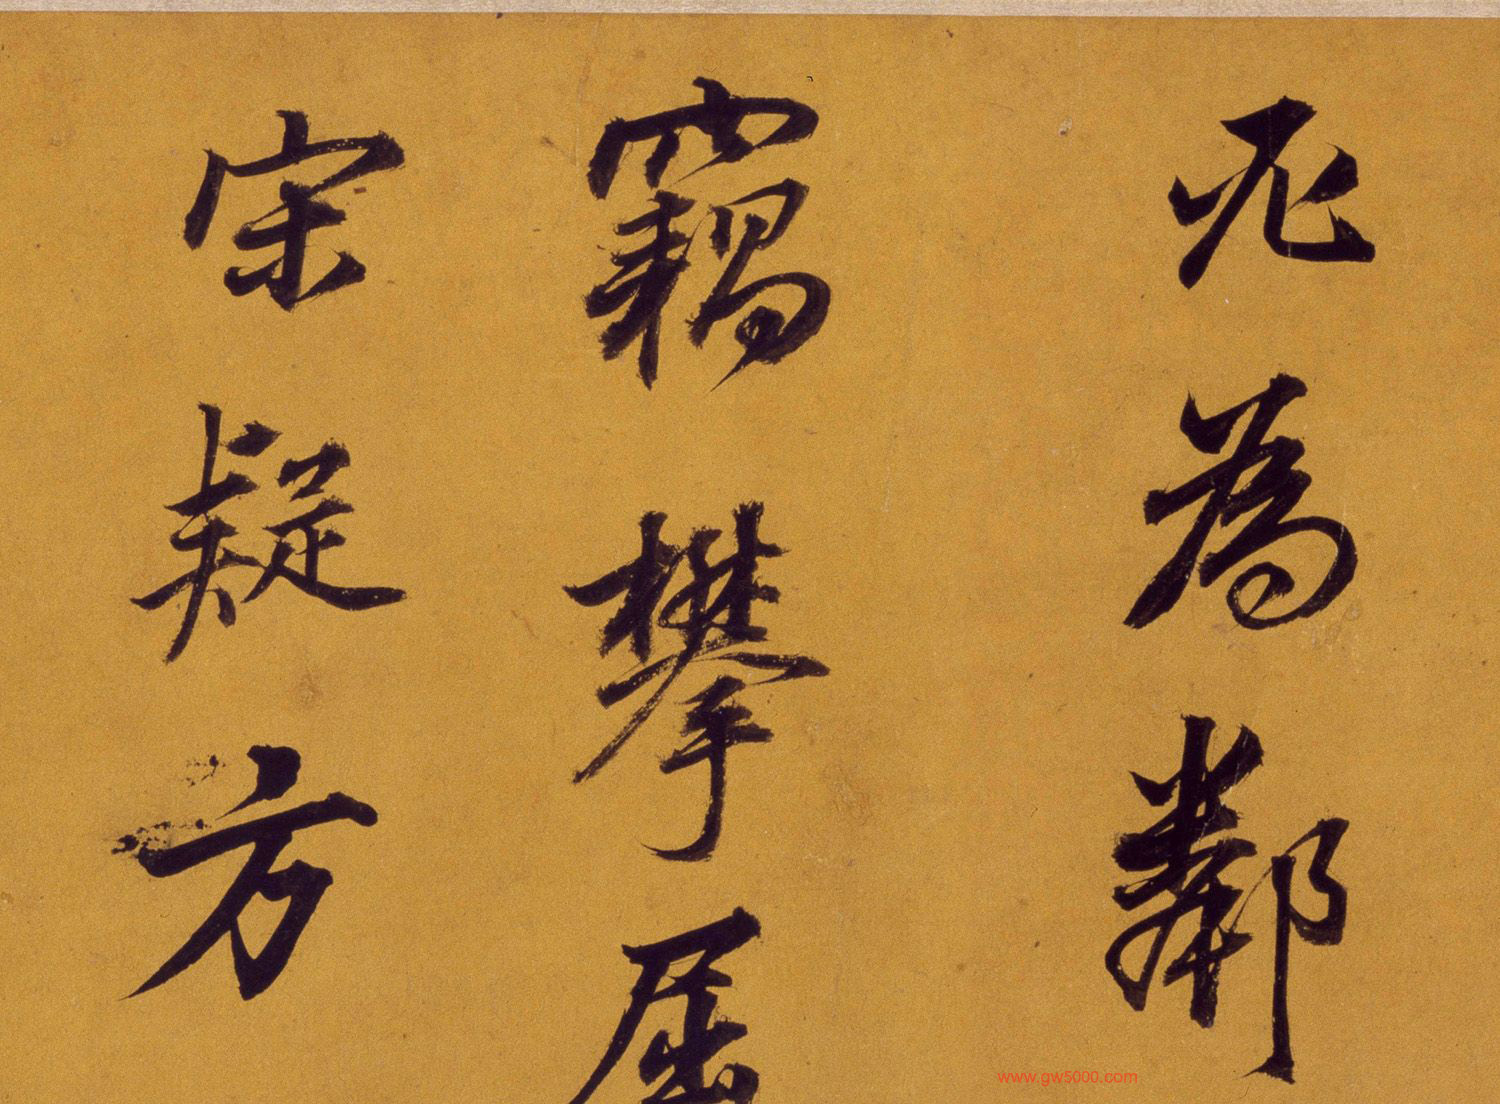 必為鄰
竊攀屈
宋疑方
www.gw5000.com